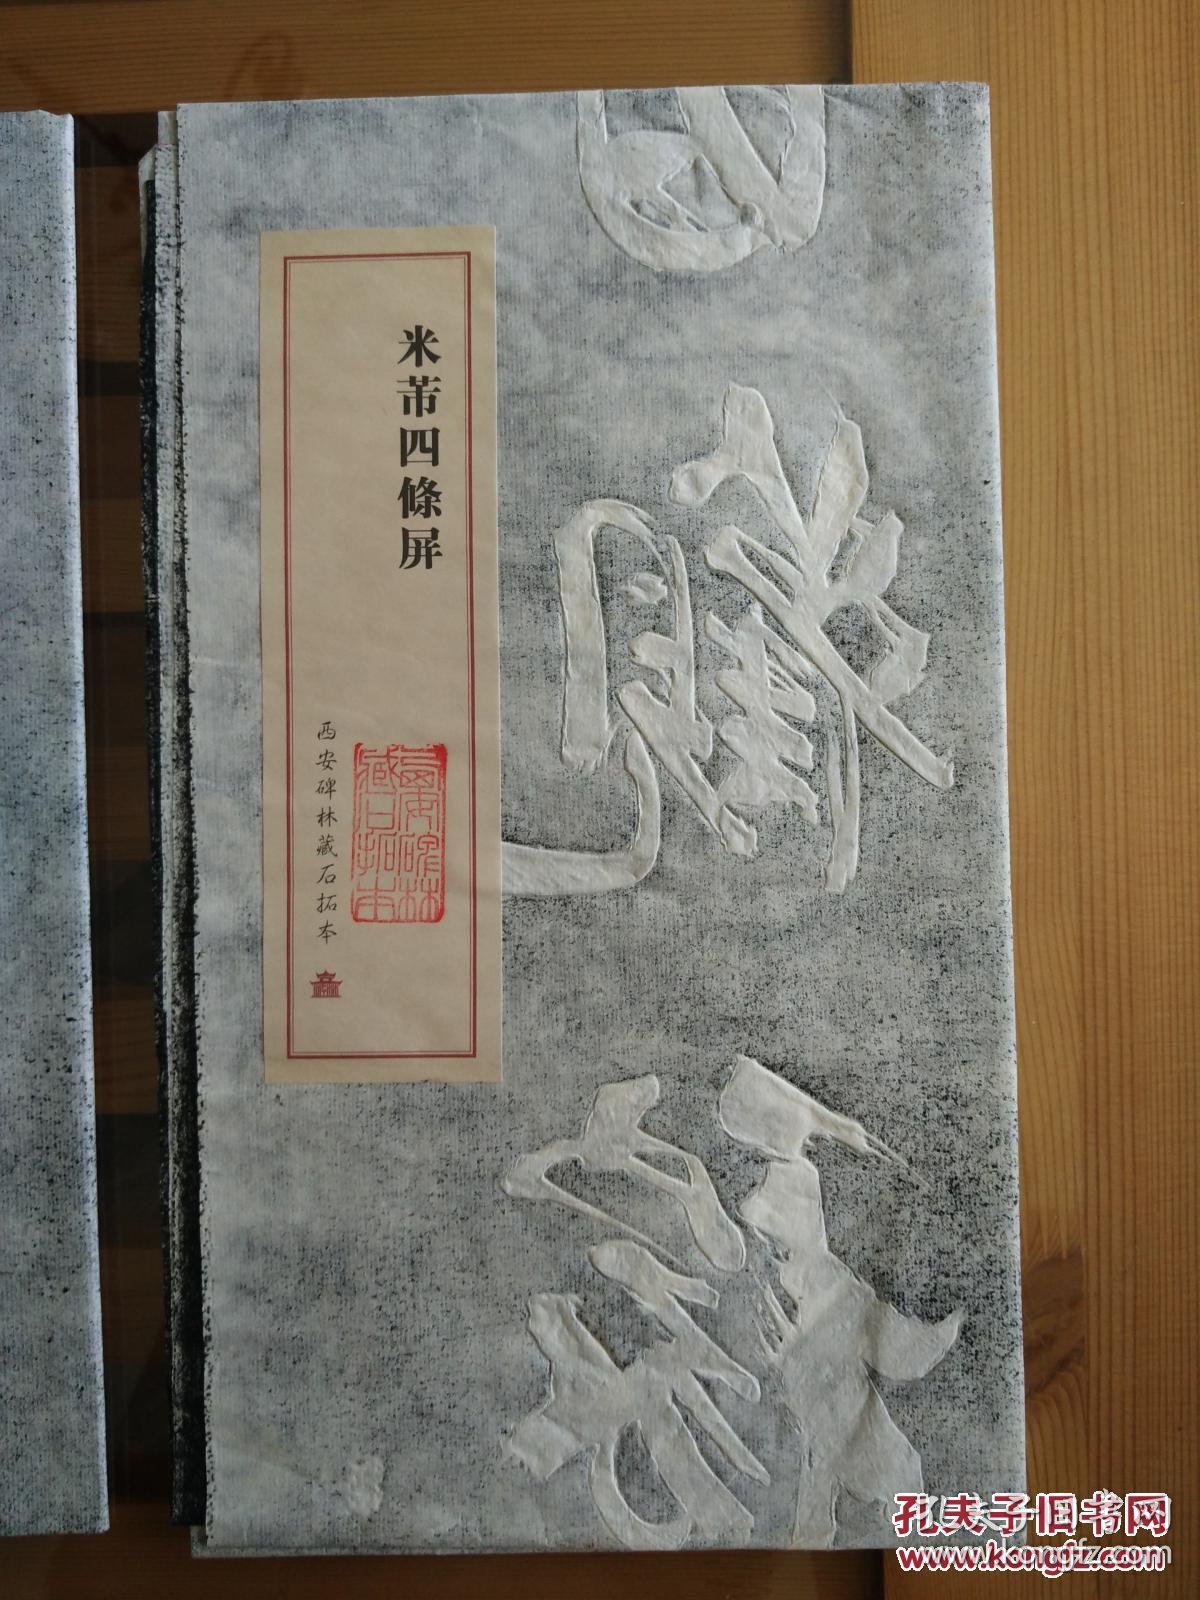 米芾四條屏
西安碑林藏石拓本
西安碑林
藏石拓本
孔夫子旧书网
www.kongfz.com